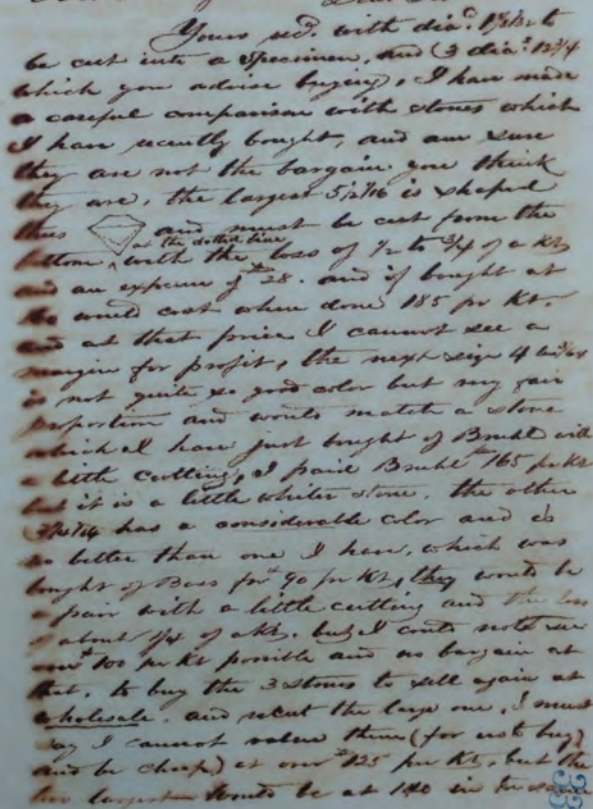 Yours recd. with diad.
be cut into a specimen, and (3 dias. 12¾
which you advise buying), I have made
a careful comparison with stones which
I have recently bought, and am sure
they are not the bargain you think
they are, the largest 5½ 1/16 is shaped
thus and must be cut from the
bottom ^ at the dotted line with the loss of ½ to ¾ of a Kt,
and an expense of $28. and if bought at
would cost when done 185 pr Kt.
and at that price I cannot see a
margin for profit, the next size 4
is not quite so good color but very fair
proportion and would match a stone
which I have just bought of Bruhl with
a little cutting, I paid Bruhl $165 pr Kt
but it is a little whiter stone. the other
has a considerable color and is
no better than one I have, which was
bought of Bass for $90 pr Kt, they would be
a pair with a little cutting and the loss
of about ¼ of a Kt. but I could not see
over $100 pr Kt possible and no bargain at
that, to buy the 3 stones to sell again at
wholesale. and recut the large one, I must
say I cannot value them (for us to buy)
and be cheap) at over $125 pr Kt, but the
two largest would be at 140 in